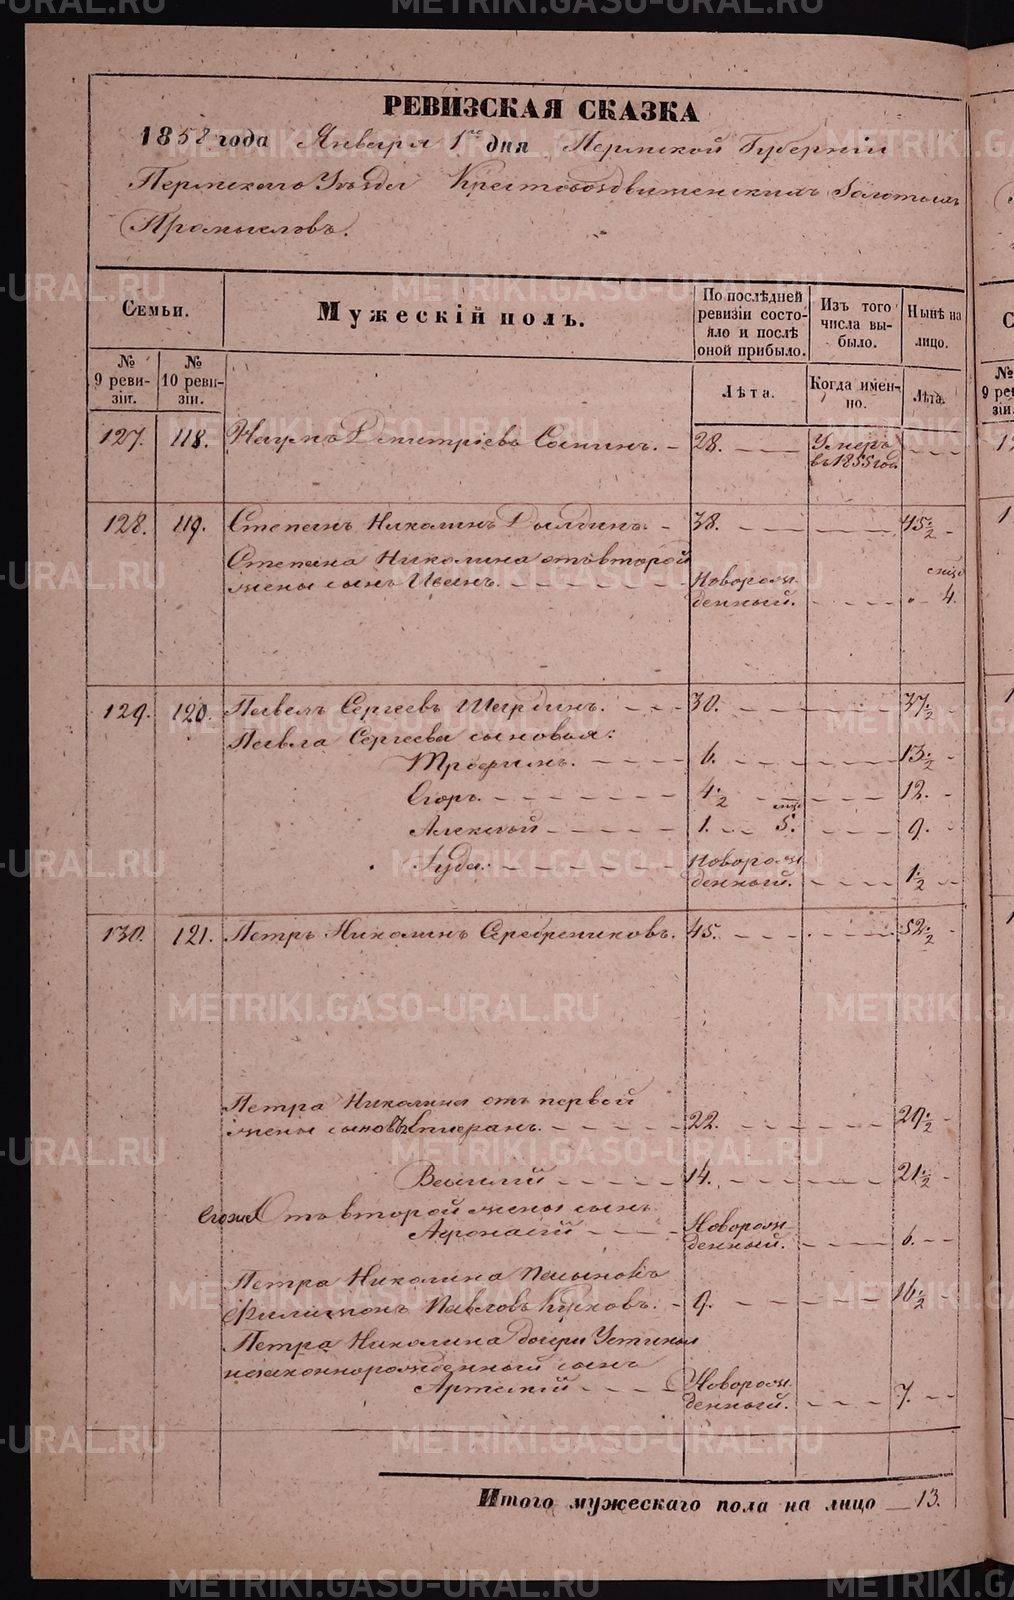 РЕВИЗСКАЯ СКАЗКА
1858 года Января 1го дня Пермской Губерніи
Пермскаго Уѣзда Крестовоздвиженскихъ Золотыхъ
Промысловъ.
Семьи.
Мужескій полъ.
По послѣдней ревизіи состояло и послѣ оной прибыло.
Изъ того числа выбыло.
Нынѣ на лицо.
№ 9 ревизіи.
№ 10 ревизіи.
Лѣта.
Когда именно.
Лѣта.
127. 118. Наумъ Дмитріевъ Санинъ. 28. Умеръ въ 1855 год
128. 119. Степанъ Николинъ Дылдинъ. 38. 45 1/2
Степана Николина отъ второй
жены сынъ Иванъ. Новорожденный. мцъ 4.
129. 120. Павелъ Сергеевъ Шардинъ. 30. 37 1/2
Павла Сергеева сыновья:
Трофимъ. 6. 13 1/2
Егоръ. 4 1/2 12.
Алексѣй 1. мцъ 5. 9.
Іуда. Новорожденный. 1 1/2
130. 121. Петръ Николинъ Серебрениковъ. 45. 52 1/2
Петра Николина отъ первой
жены сыновья 22. 29 1/2
Василій 14. 21 1/2
Егоже Отъ второй жены сынъ
Афонасій Новорожденный. 6.
Петра Николина пасынокъ
Филимонъ Павловъ 9. 16 1/2
Петра Николина дочери Устиньи
незаконнорожденный сынъ
Артемій Новорожденный. 7.
Итого мужескаго пола на лицо 13.
METRIKI.GASO-URAL.RU